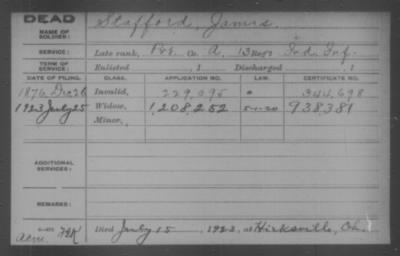 DEAD
NAME OF SOLDIER: Stafford, James.
SERVICE: Late rank, Pvt. Co. A, 13 Reg't Ind. Inf.
TERM OF SERVICE: Enlisted , 1 Discharged , 1
DATE OF FILING. CLASS. APPLICATION NO. LAW. CERTIFICATE NO.
1876 Dec 26 Invalid, 229,095 344,698
1923 July 25 Widow, 1,208,252 5-1-20 938381
Minor,
ADDITIONAL SERVICES:
REMARKS:
Died July 15, 1923, at Hicksville, Oh.